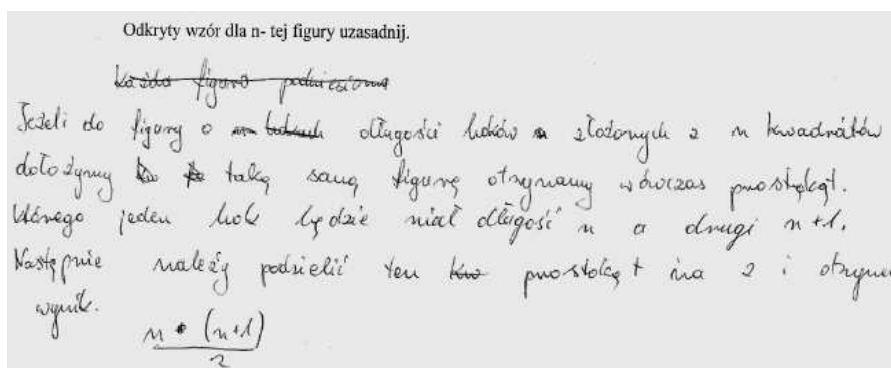 Odkryty wzór dla n- tej figury uzasadnij.
Każda figura podniesiona
Jeżeli do figury o długości boków złożonych z n kwadratów
dołożymy taką samą figurę otrzymamy wówczas prostokąt.
Którego jeden bok będzie miał długość n a drugi n+1.
Następnie należy podzielić ten prostokąt na 2 i
wynik.
n • (n+1)
2